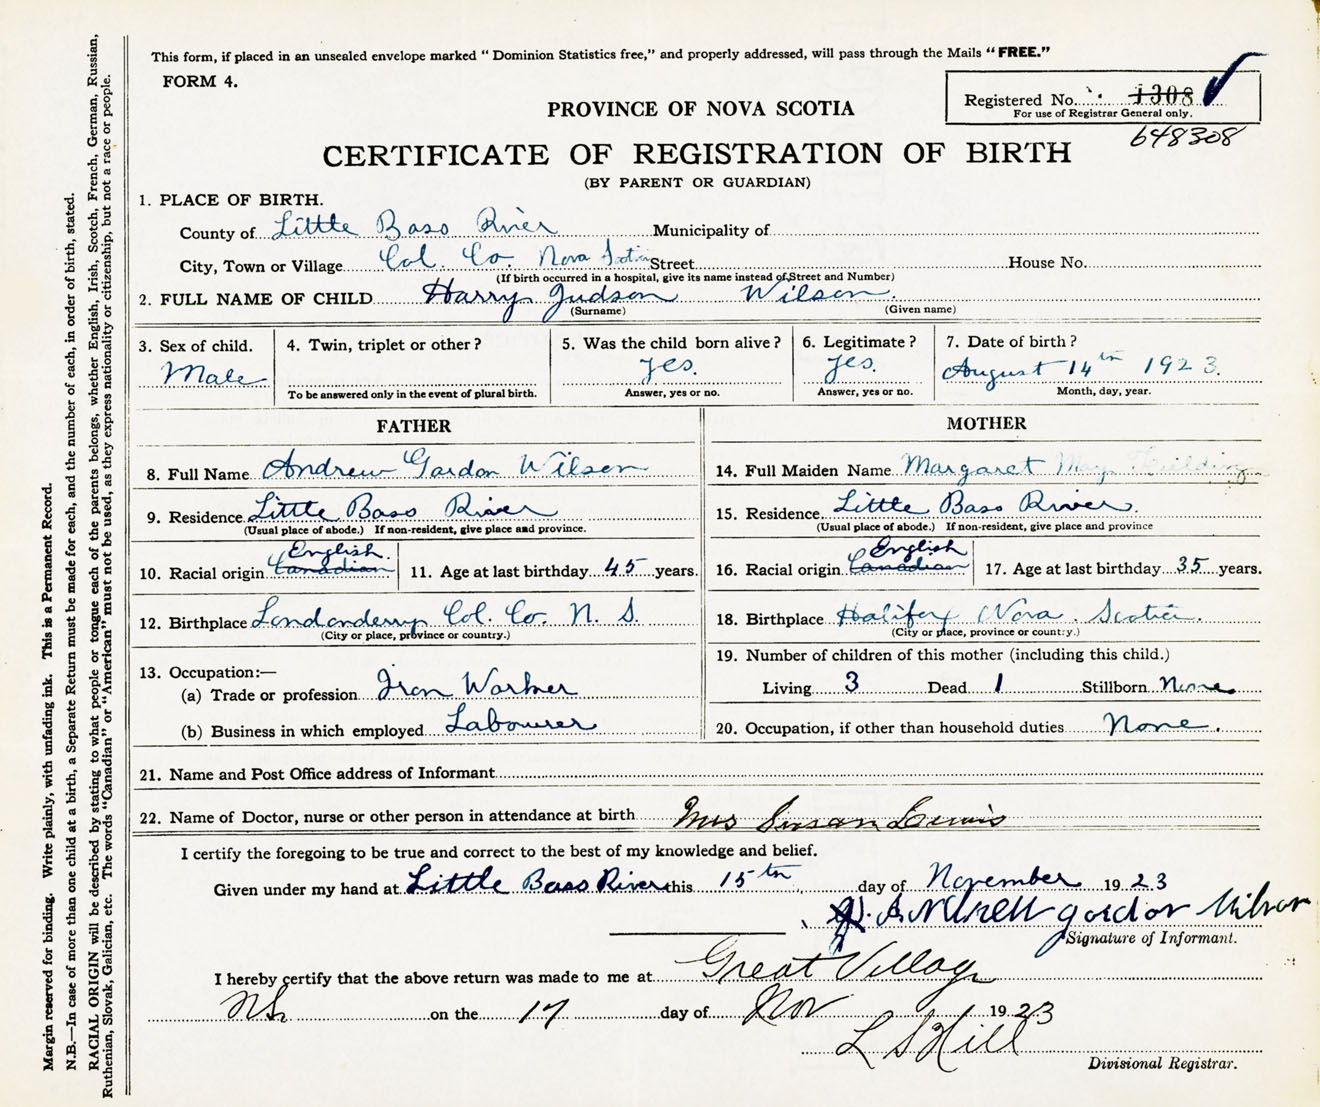 This form, if placed in an unsealed envelope marked "Dominion Statistics free," and properly addressed, will pass through the Mails "FREE."
FORM 4.
Registered No. 1308
For use of Registrar General only.
648308
PROVINCE OF NOVA SCOTIA
CERTIFICATE OF REGISTRATION OF BIRTH
(BY PARENT OR GUARDIAN)
1. PLACE OF BIRTH.
County of Little Bass River Municipality of
City, Town or Village Col. Co. Nova Scotia Street House No.
(If birth occurred in a hospital, give its name instead of Street and Number)
2. FULL NAME OF CHILD Harry Judson Wilson.
(Surname) (Given name)
3. Sex of child. 4. Twin, triplet or other? 5. Was the child born alive? 6. Legitimate? 7. Date of birth?
Male yes. yes. August 14th 1923.
To be answered only in the event of plural birth. Answer, yes or no. Answer, yes or no. Month, day, year.
FATHER MOTHER
8. Full Name Andrew Gordon Wilson 14. Full Maiden Name Margaret May
9. Residence Little Bass River 15. Residence Little Bass River.
(Usual place of abode.) If non-resident, give place and province. (Usual place of abode.) If non-resident, give place and province
English. English
10. Racial origin Canadian 11. Age at last birthday 45 years. 16. Racial origin Canadian 17. Age at last birthday 35 years.
12. Birthplace Londonderry Col. Co. N. S. 18. Birthplace Halifax Nova Scotia.
(City or place, province or country.) (City or place, province or country.)
13. Occupation:— 19. Number of children of this mother (including this child.)
(a) Trade or profession Iron Worker Living 3 Dead 1 Stillborn None
(b) Business in which employed Labourer 20. Occupation, if other than household duties None.
21. Name and Post Office address of Informant
22. Name of Doctor, nurse or other person in attendance at birth Mrs Susan Lewis
I certify the foregoing to be true and correct to the best of my knowledge and belief.
Given under my hand at Little Bass River this 15th day of November 1923
gordon Wilson
Signature of Informant.
I hereby certify that the above return was made to me at Great Village
NS. on the 17 day of Nov 1923
L S Hill
Divisional Registrar.
Margin reserved for binding. Write plainly, with unfading ink. This is a Permanent Record.
N.B.—In case of more than one child at a birth, a Separate Return must be made for each, and the number of each, in order of birth, stated.
RACIAL ORIGIN will be described by stating to what people or tongue each of the parents belongs, whether English, Irish, Scotch, French, German, Russian,
Ruthenian, Slovak, Galician, etc. The words "Canadian" or "American" must not be used, as they express nationality or citizenship, but not a race or people.